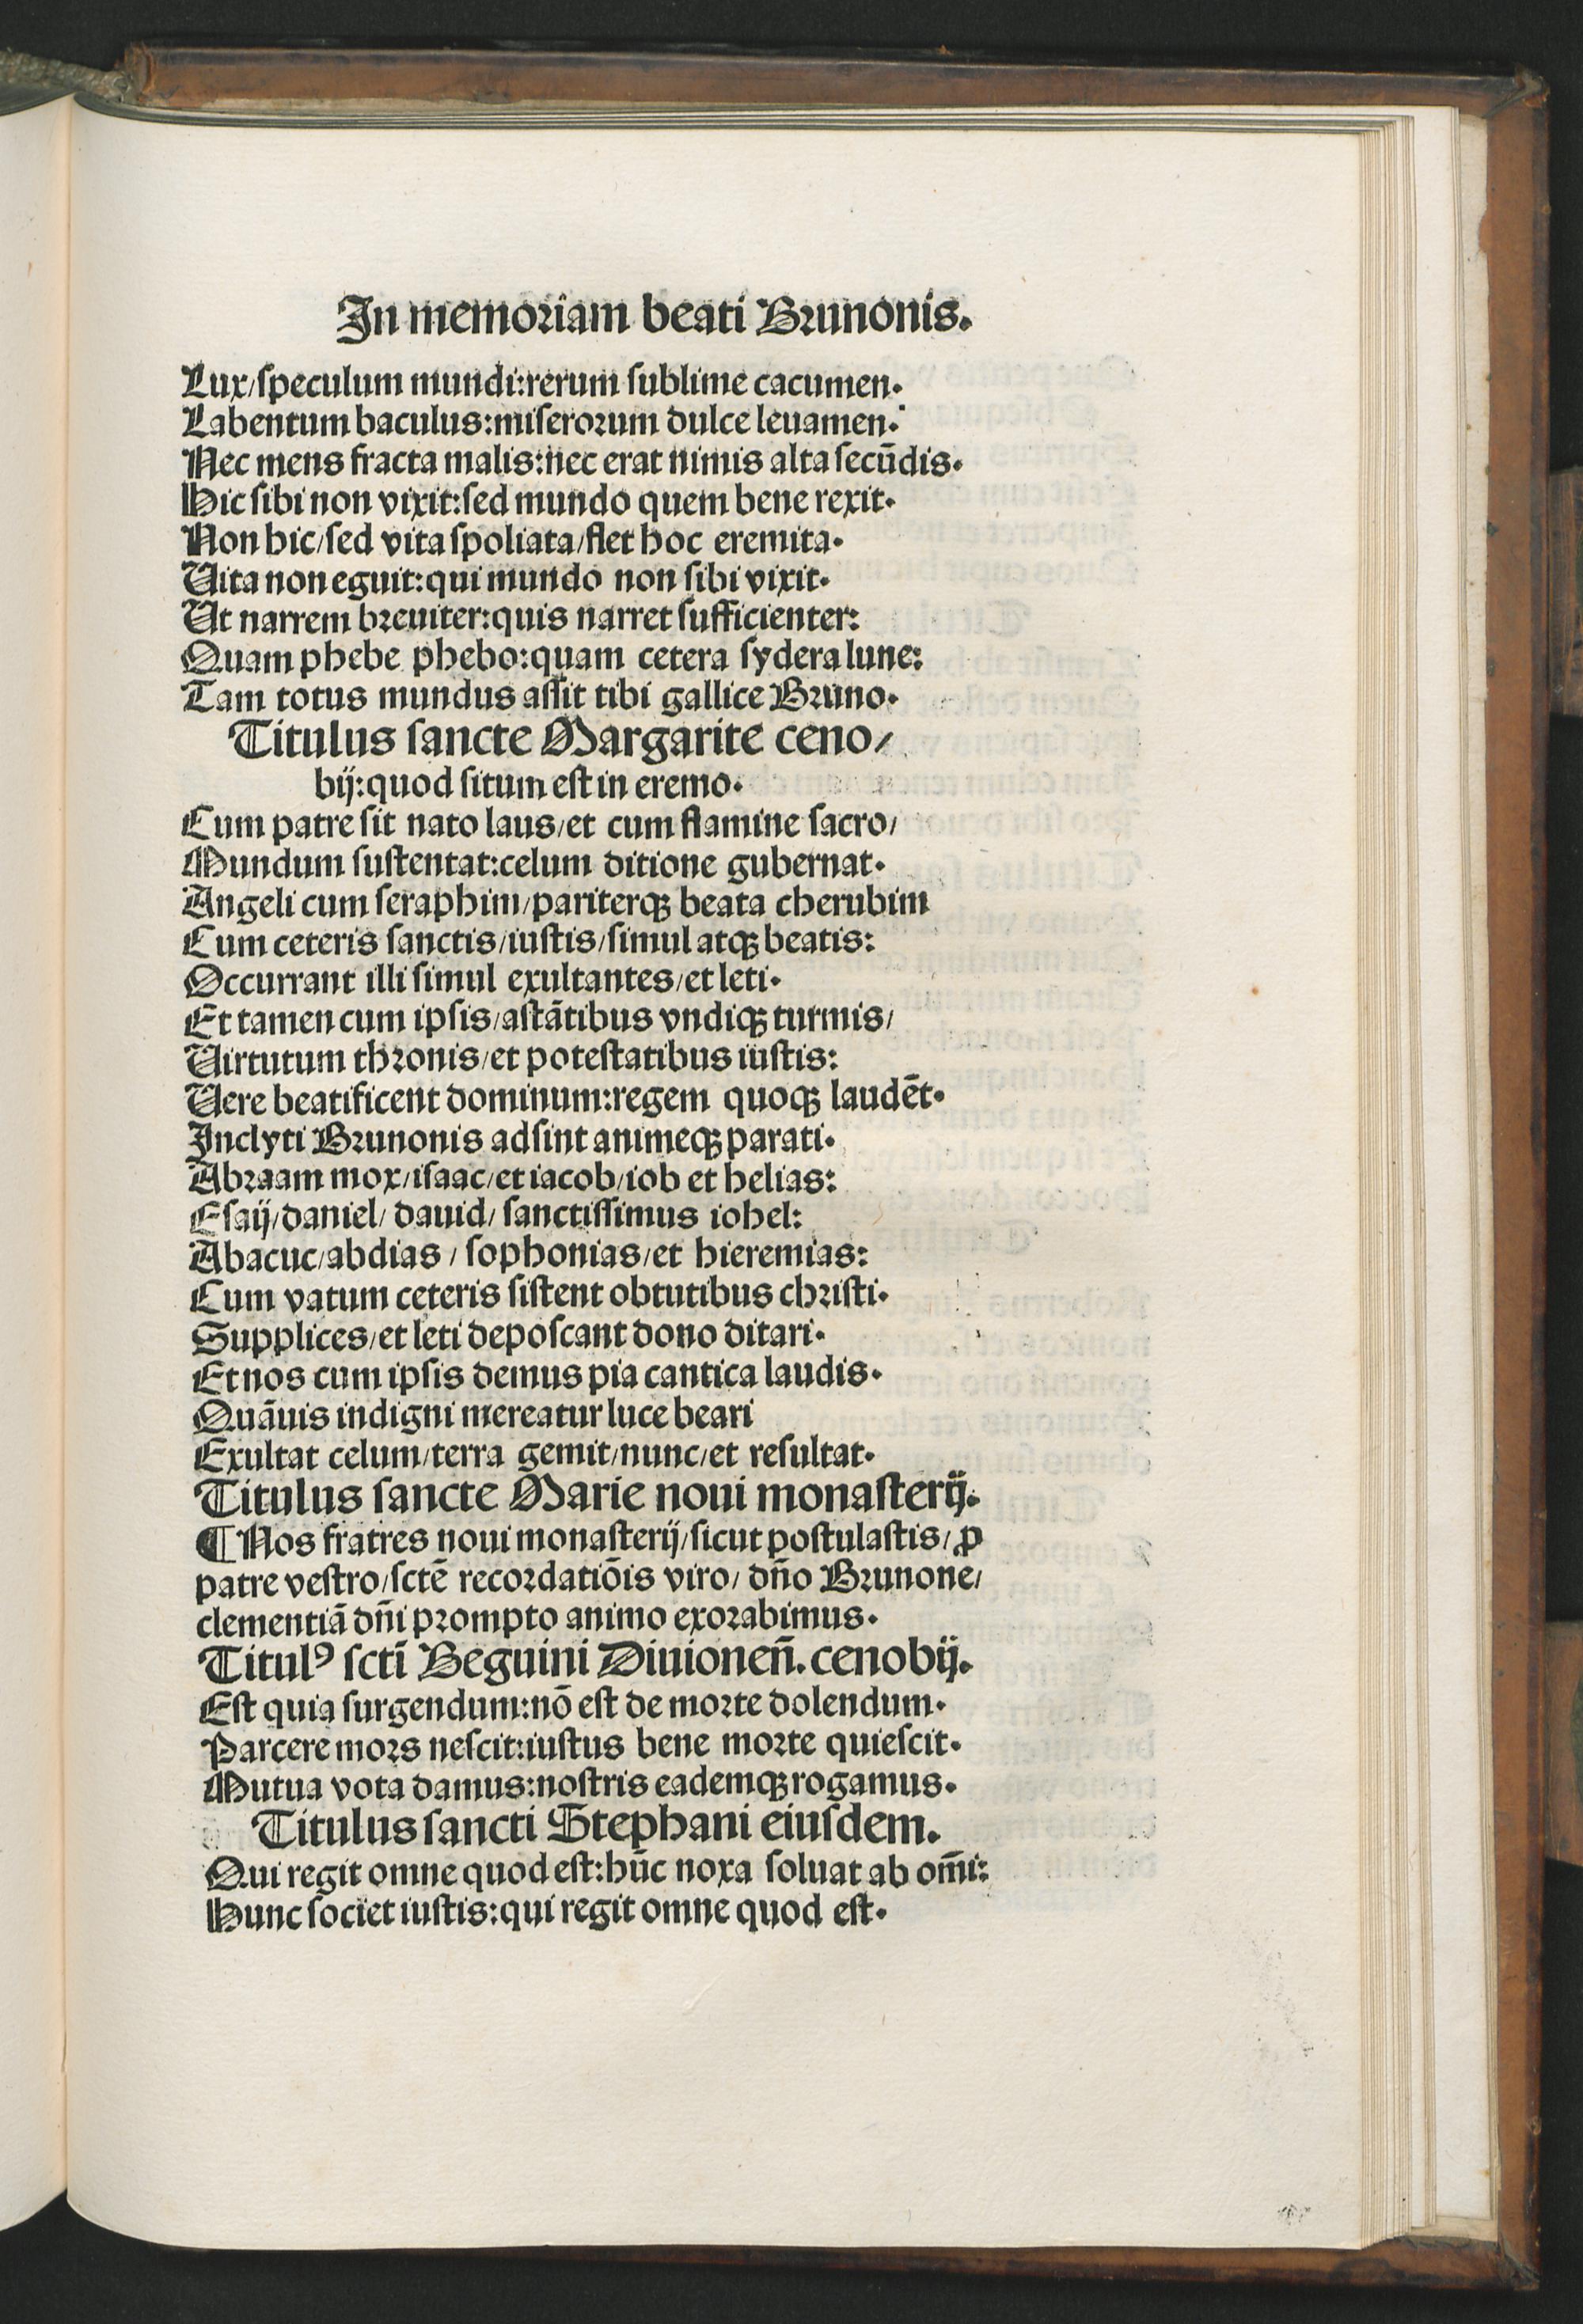 In memoriam beati Brunonis.
Lux/speculum mundi:rerum sublime cacumen.
Labentum baculus:miserorum dulce leuamen.
Nec mens fracta malis:nec erat nimis alta secūdis.
Hic sibi non vixit:sed mundo quem bene rexit.
Non hic/sed vita spoliata/flet hoc eremita.
Uita non eguit:qui mundo non sibi vixit.
Ut narrem breuiter:quis narret sufficienter:
Quam phebe phebo:quam cetera sydera lune:
Tam totus mundus assit tibi gallice Bruno.
Titulus sancte Margarite ceno/
bij:quod situm est in eremo.
Cum patre sit nato laus/et cum flamine sacro/
Mundum sustentat:celum ditione gubernat.
Angeli cum seraphim/pariterqꝫ beata cherubim
Cum ceteris sanctis/iustis/simul atqꝫ beatis:
Occurrant illi simul exultantes/et leti.
Et tamen cum ipsis/astātibus vndiqꝫ turmis/
Uirtutum thronis/et potestatibus iustis:
Uere beatificent dominum:regem quoqꝫ laudēt.
Inclyti Brunonis adsint animeqꝫ parati.
Abraam mox/isaac/et iacob/iob et helias:
Esaij/daniel/dauid/sanctissimus iohel:
Abacuc/abdias/sophonias/et hieremias:
Cum vatum ceteris sistent obtutibus christi.
Supplices/et leti deposcant dono ditari.
Et nos cum ipsis demus pia cantica laudis.
Quāuis indigni mereatur luce beari
Exultat celum/terra gemit/nunc/et resultat.
Titulus sancte Marie noui monasterij.
¶ Nos fratres noui monasterij/sicut postulastis/ꝓ
patre vestro/sctē recordatiōis viro/dn̄o Brunone/
clementiā dn̄i prompto animo exorabimus.
Titulꝰ sctī Beguini Diuionen̄. cenobij.
Est quia surgendum:nō est de morte dolendum.
Parcere mors nescit:iustus bene morte quiescit.
Mutua vota damus:nostris eademqꝫ rogamus.
Titulus sancti Stephani eiusdem.
Qui regit omne quod est:hūc noxa soluat ab om̄i:
Hunc societ iustis:qui regit omne quod est.